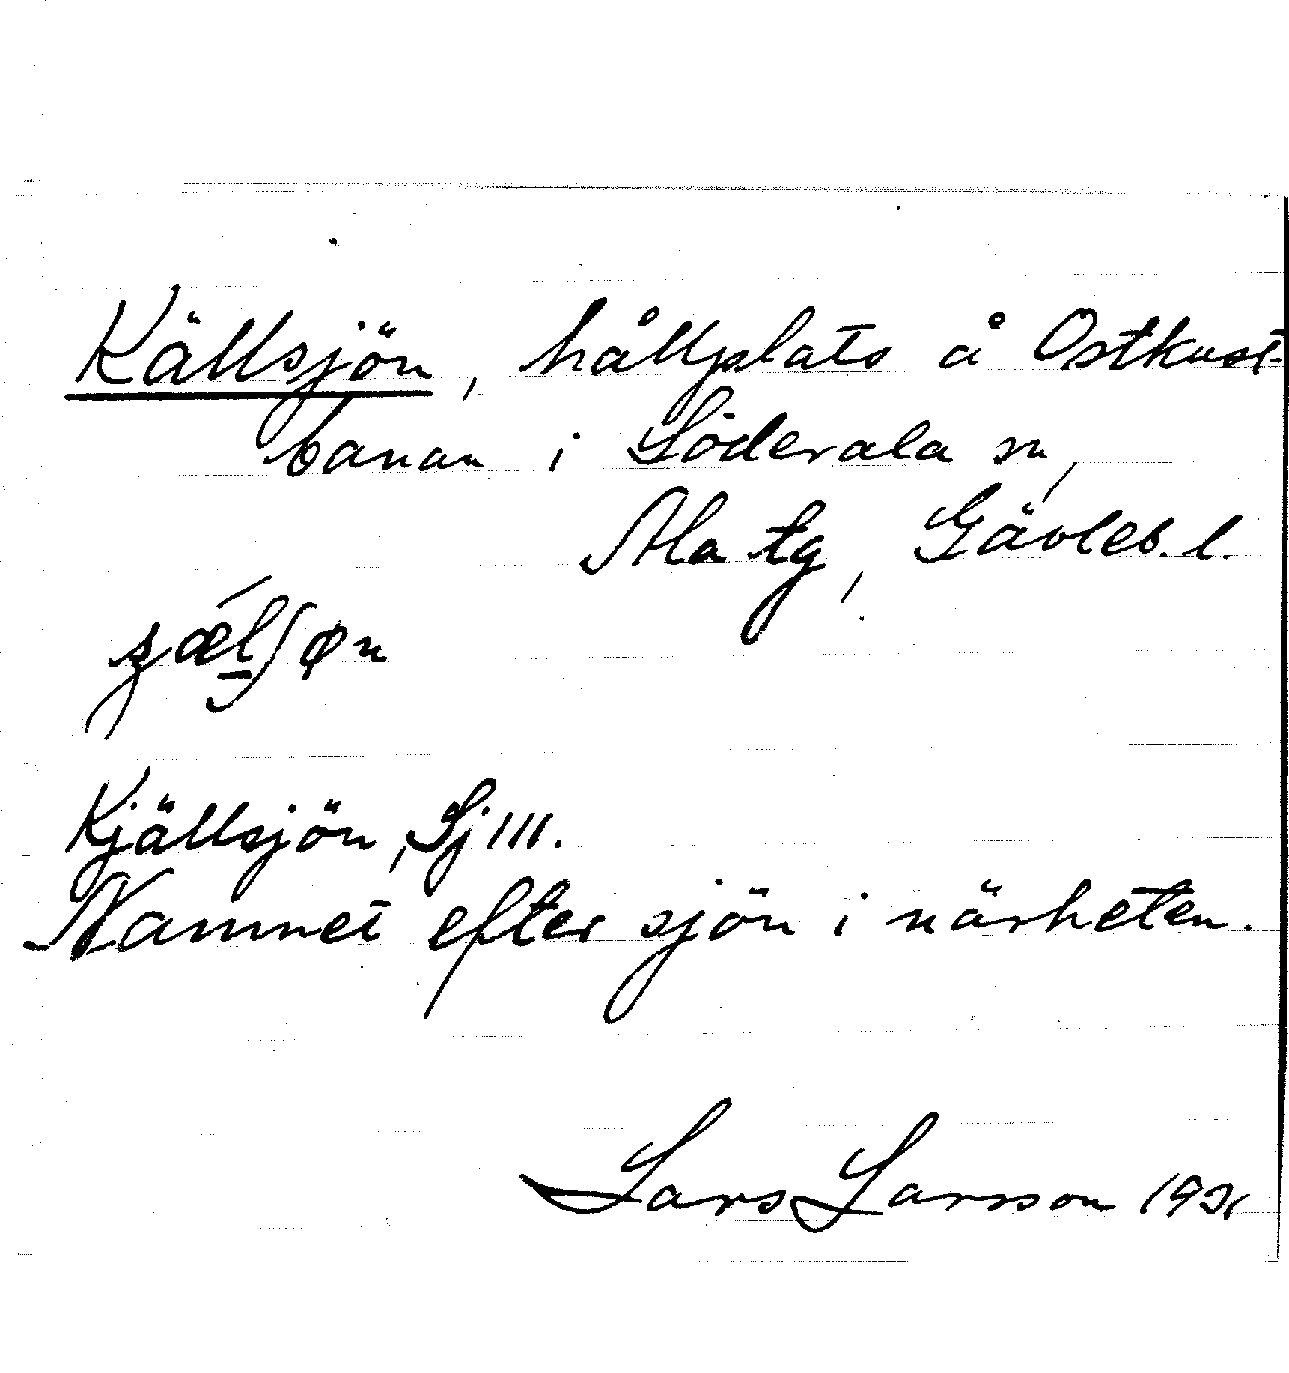 Källsjön, hållplats å Ostkust-
banan i Söderala sn,
Ala tg, Gävleb. l.
Kjällsjön, Sj III.
Namnet efter sjön i närheten.
Lars Larsson